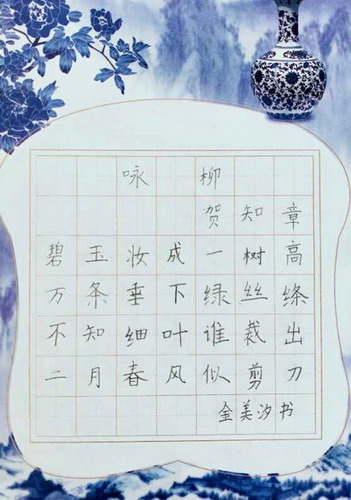 咏柳
贺知章
碧玉妆成一树高
万条垂下绿丝绦
不知细叶谁裁出
二月春风似剪刀
金美汐书